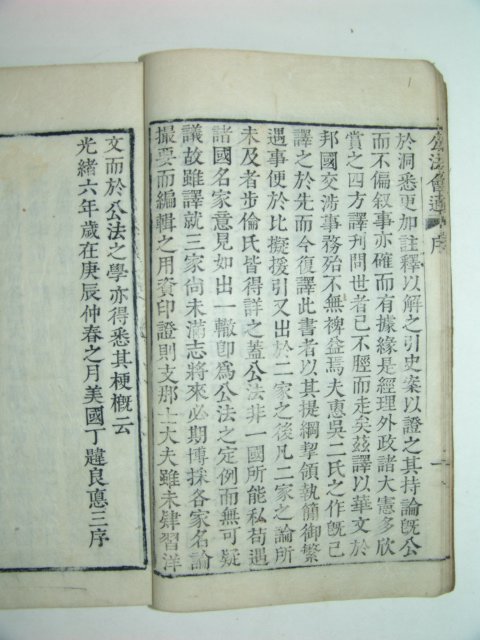 公法會通 序
於洞悉更加註釋以解之引史案以證之其持論旣公
而不偏叙事亦確而有據緣是經理外政諸大憲多欣
賞之四方譯刊問世者已不脛而走矣茲譯以華文於
邦國交涉事務殆不無裨益焉夫惠吳二氏之作旣已
譯之於先而今復譯此書者以其提綱挈領執簡御繁
遇事便於比擬援引又出於二家之後凡二家之論所
未及者步倫氏皆得詳之蓋公法非一國所能私苟遇
諸國名家意見如出一轍卽爲公法之定例而無可疑
議故雖譯就三家尙未滿志將來必期博採各家名論
撮要而編輯之用資印證則支那士大夫雖未肄習洋
文而於公法之學亦得悉其梗槪云
光緒六年歲在庚辰仲春之月美國丁韙良悳三序